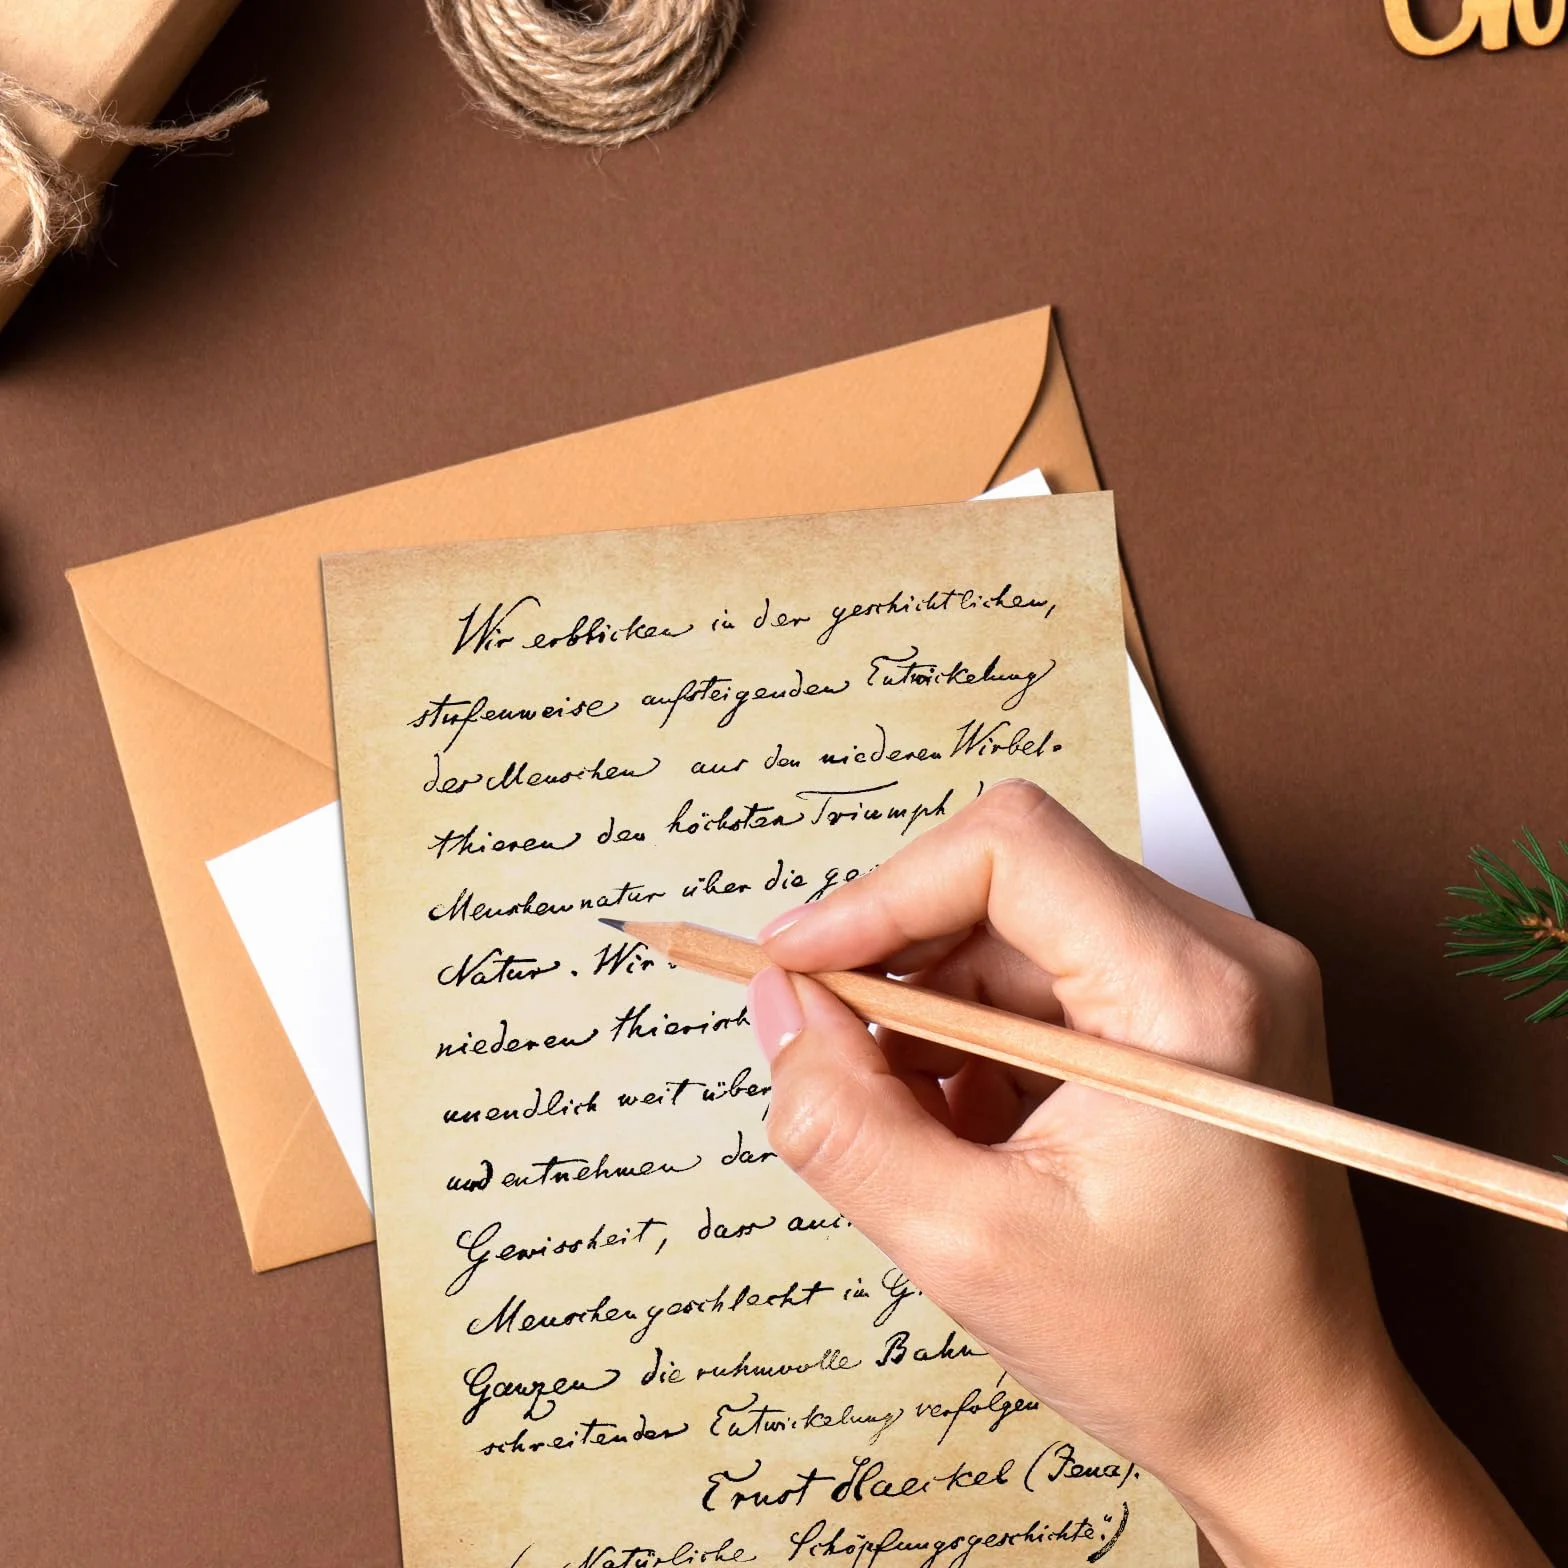 Wir erblicken in der geschichtlichen,
stufenweise aufsteigenden Entwickelung
des Menschen aus den niederen Wirbel-
thieren den höchsten Triumph
Menschennatur über die
Natur. Wir
niederen
unendlich weit
und entnehmen
Gewissheit, dass
Menschengeschlecht im
Ganzen die ruhmvolle Bahn
schreitender Entwickelung verfolgen
Ernst Haeckel (Jena).
(Natürliche Schöpfungsgeschichte.")